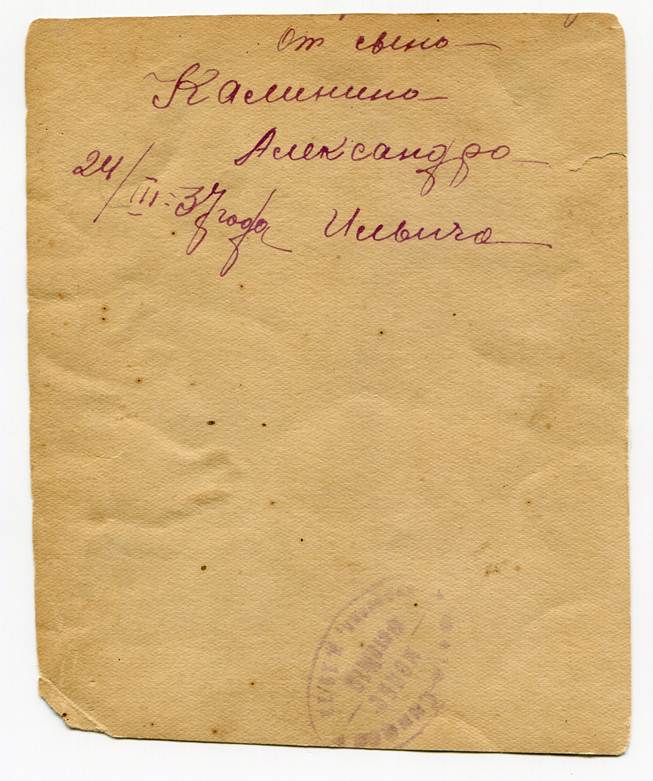 От сына
Калинина
Александра
24/III-37 года Ильича